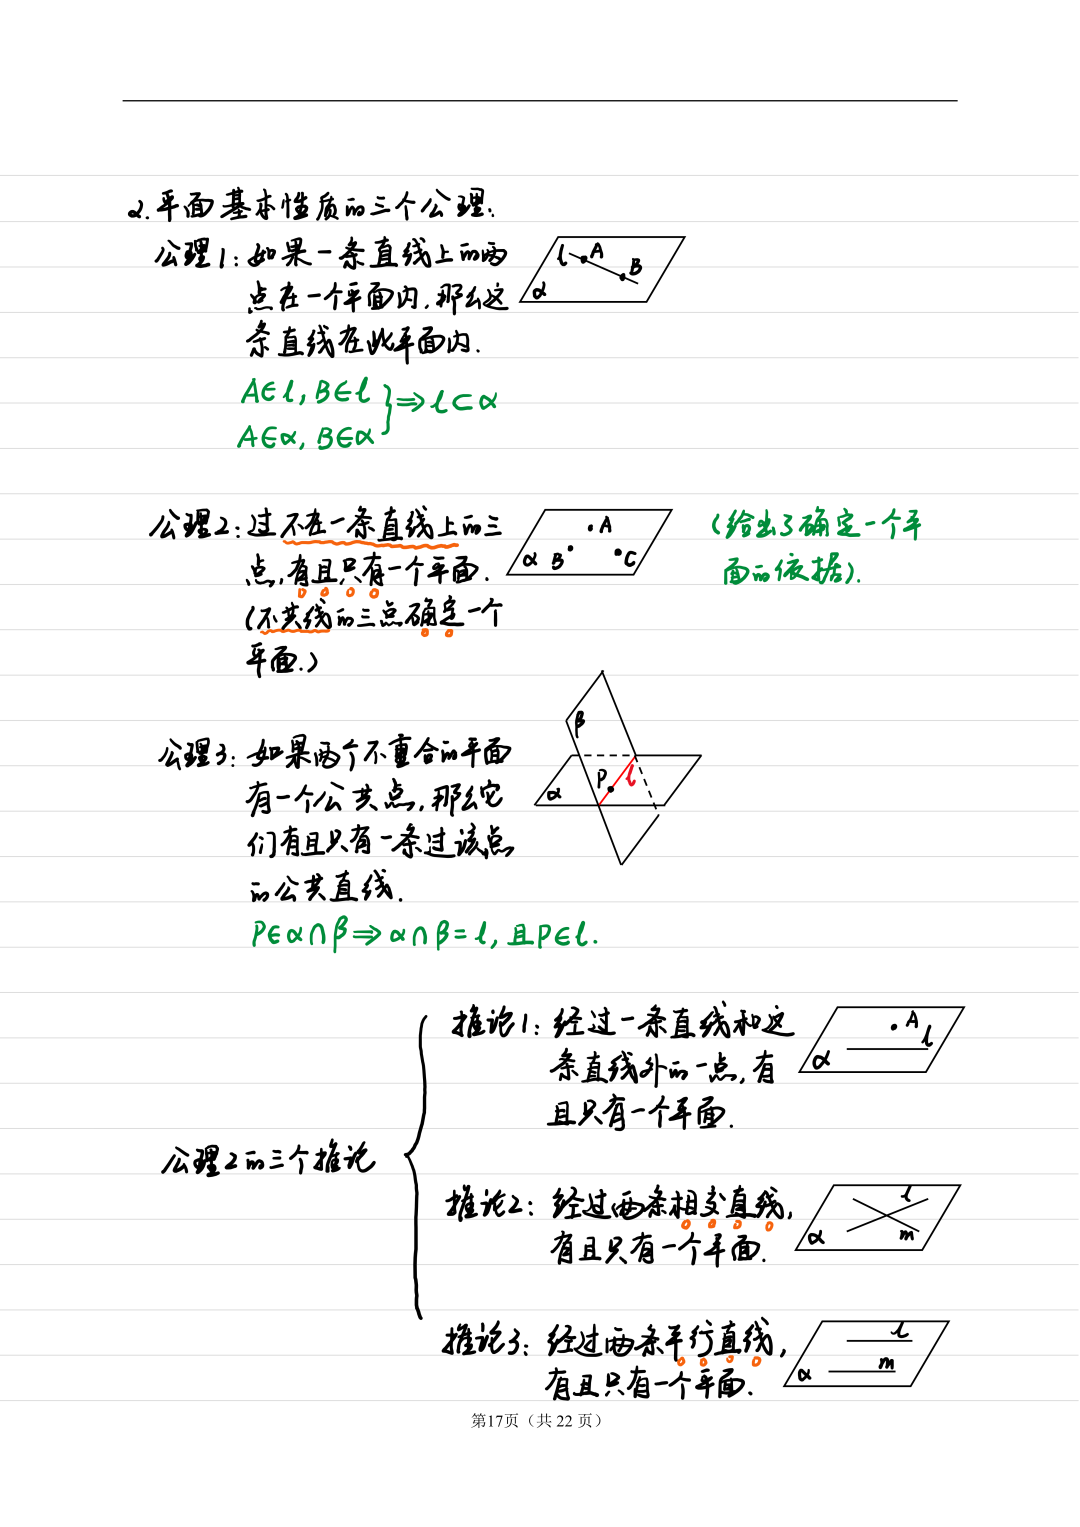 2.平面基本性质的三个公理.
公理1:如果一条直线上的两
点在一个平面内.那么这
条直线在此平面内.
l A B α
A∈l, B∈l
A∈α, B∈α } ⇒ l⊂α
公理2:过不在一条直线上的三
点,有且只有一个平面.
(不共线的三点确定一个
平面.)
A α B C
(给出了确定一个平
面的依据).
公理3:如果两个不重合的平面
有一个公共点,那么它
们有且只有一条过该点
的公共直线.
β P l α
P∈α∩β⇒α∩β=l,且P∈l.
公理2的三个推论
推论1:经过一条直线和这
条直线外的一点,有
且只有一个平面.
A l α
推论2:经过两条相交直线,
有且只有一个平面.
l α m
推论3:经过两条平行直线,
有且只有一个平面.
l m α
第17页（共 22 页）